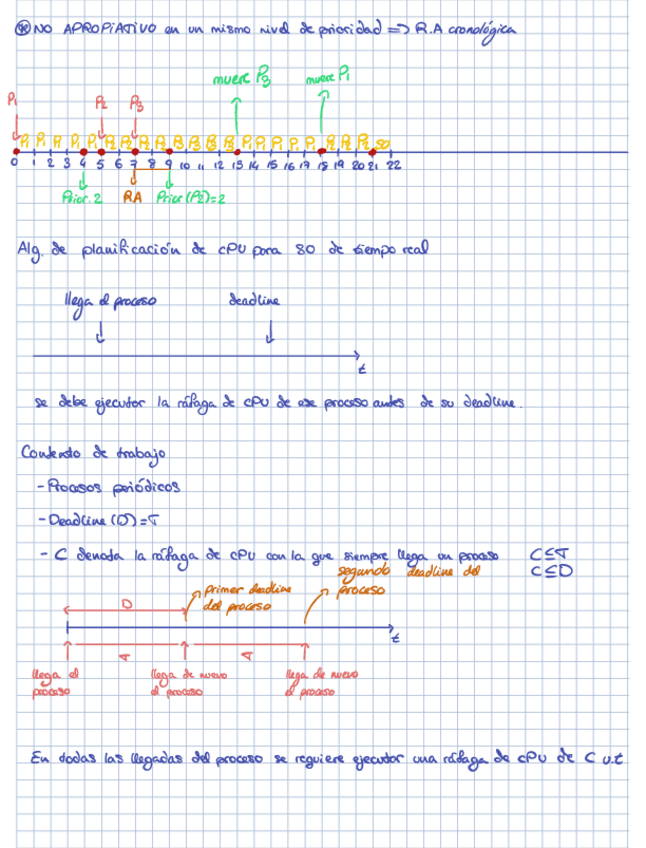 ⊛ NO APROPIATIVO en un mismo nivel de prioridad => R.A cronológica
muere P3 muere P1
P1 P2 P3
P1 P1 P1 P1 P1 P2 P2 P2 P2 P3 P3 P3 P3 P1 P1 P1 P1 P1 P2 P2 P2 SO
0 1 2 3 4 5 6 7 8 9 10 11 12 13 14 15 16 17 18 19 20 21 22
Prior. 2 RA Prior (P2)=2
Alg. de planificación de CPU para SO de tiempo real
llega el proceso deadline
t
se debe ejecutar la ráfaga de CPU de ese proceso antes de su deadline.
Contexto de trabajo
- Procesos periódicos
- Deadline (D) = T
- C denota la ráfaga de CPU con la que siempre llega un proceso C≤T
segundo deadline del C≤D
primer deadline proceso
D del proceso
t
T T
llega el llega de nuevo llega de nuevo
proceso el proceso el proceso
En todas las llegadas del proceso se requiere ejecutar una ráfaga de CPU de C u.t